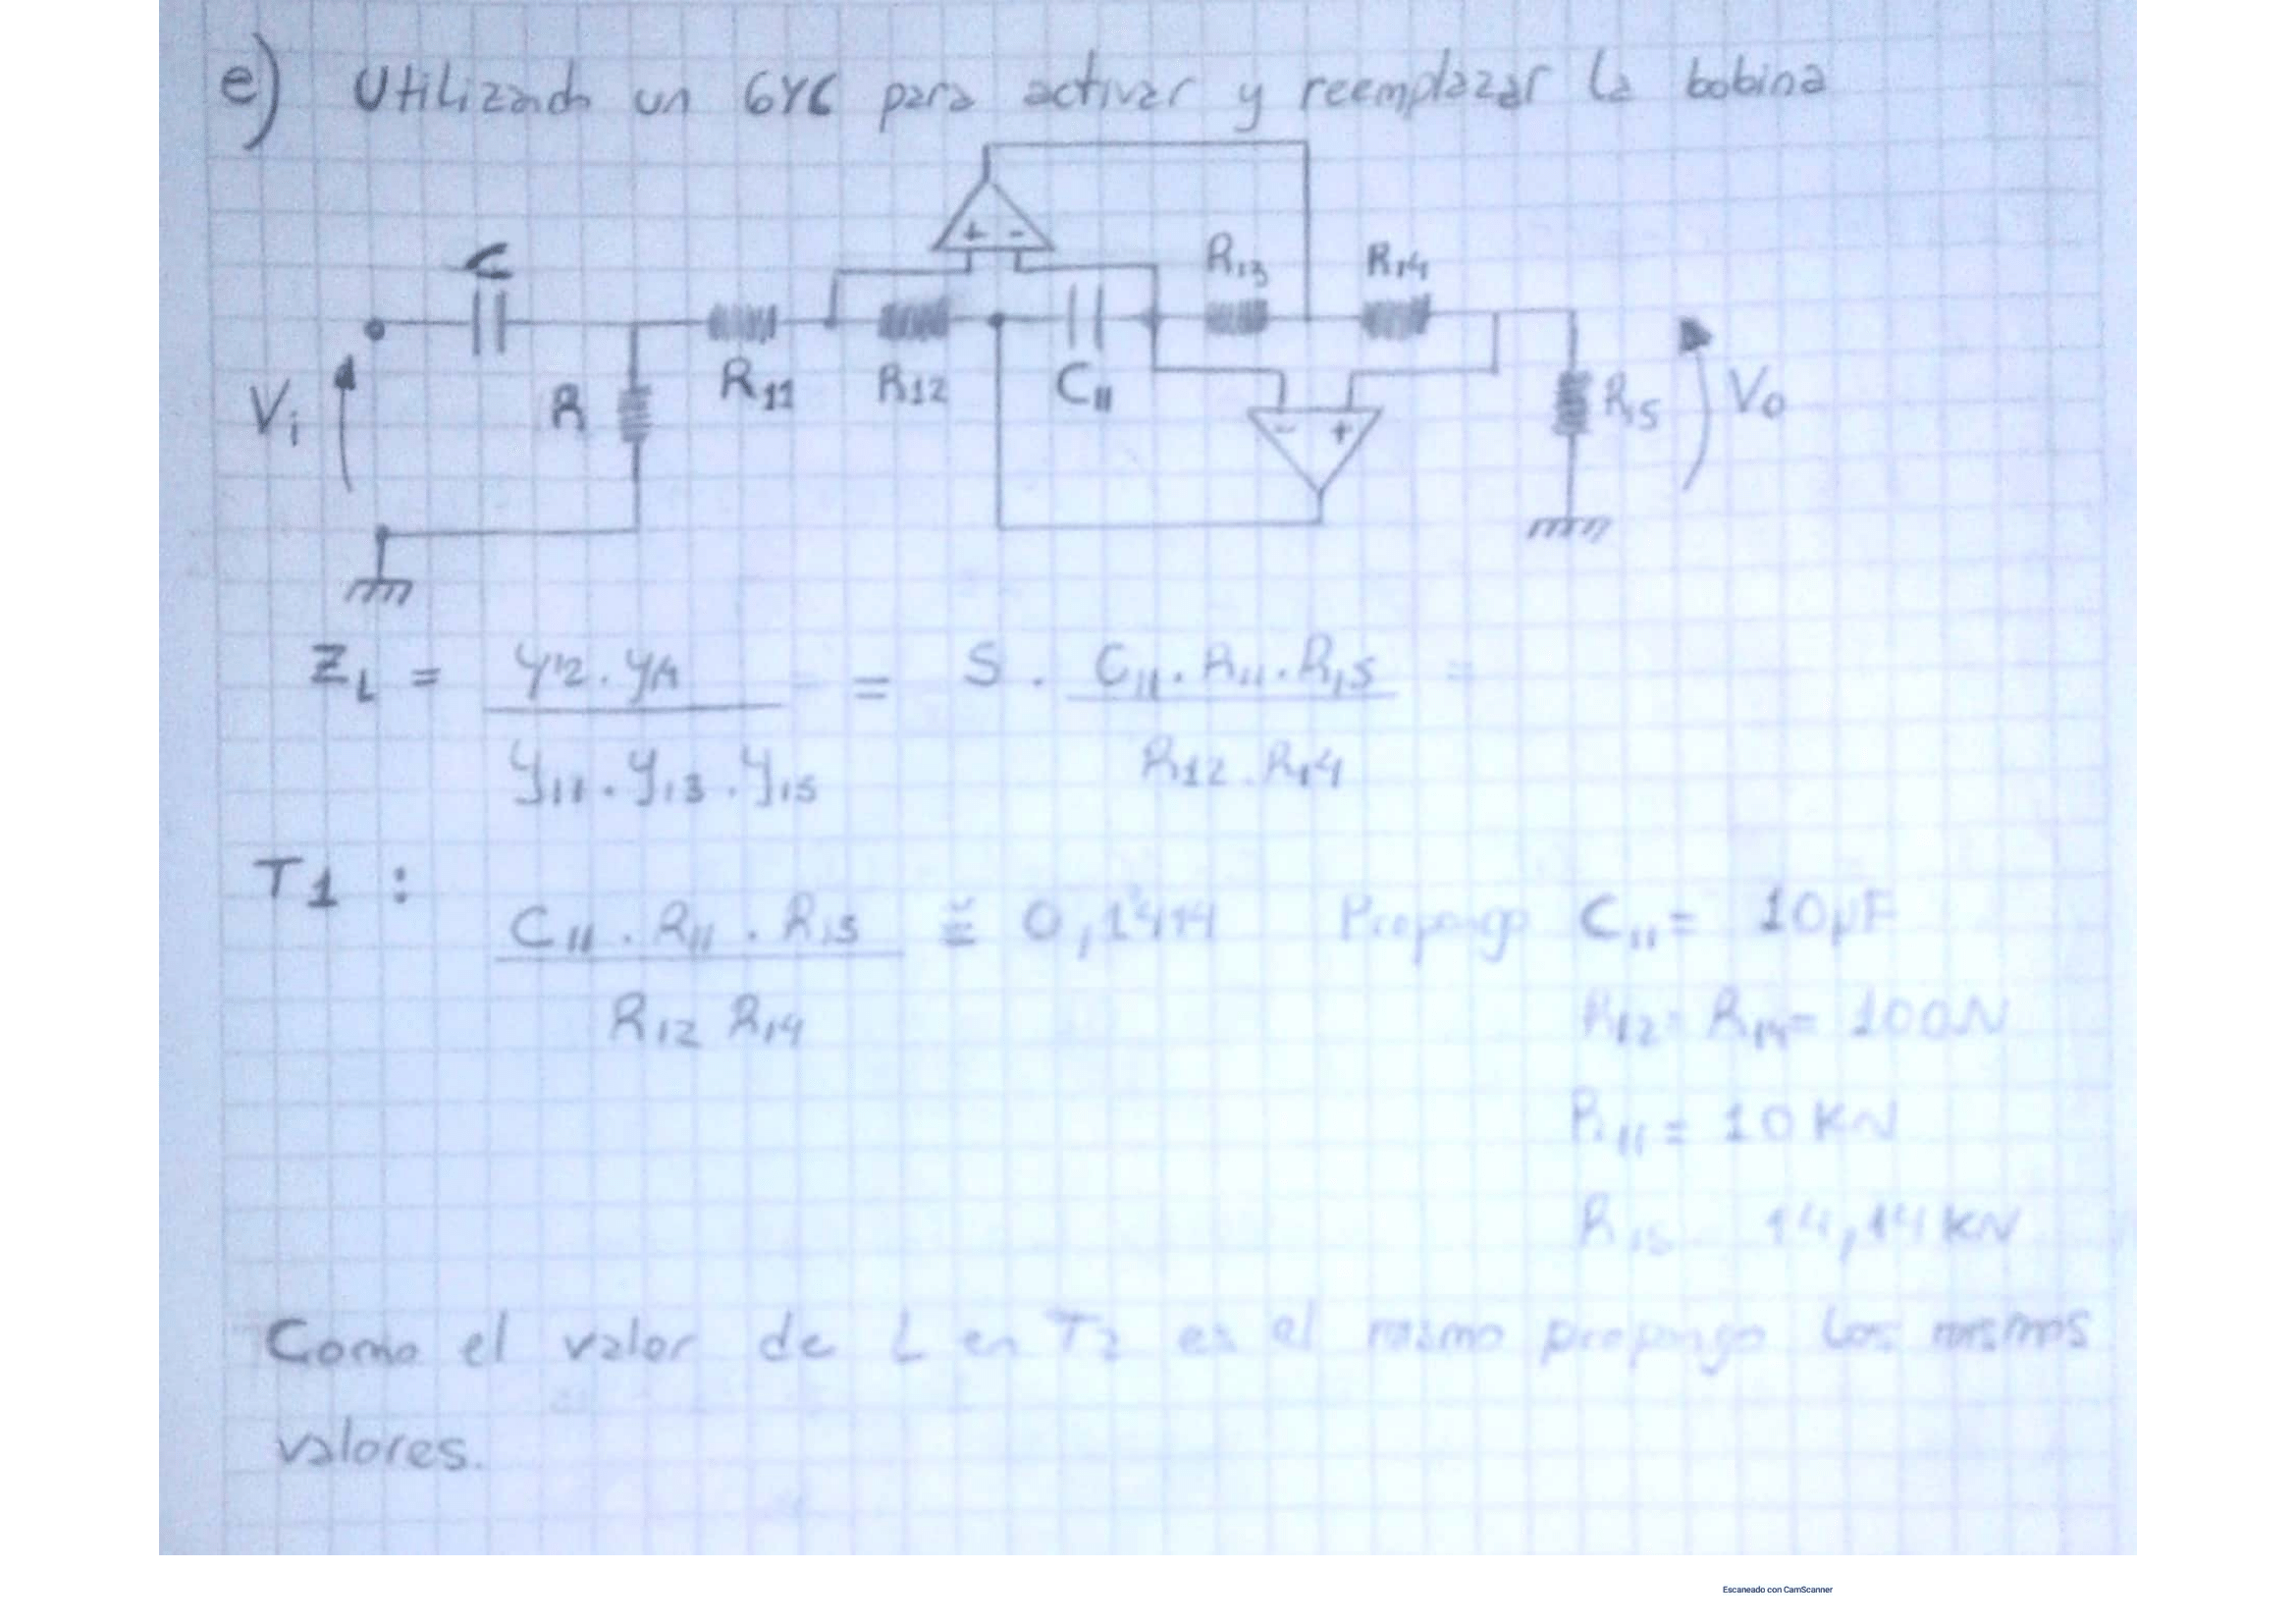 e) Utilizando un GYC para activar y reemplazar la bobina
+ -
C R13 R14
R11 R12 C11
Vi R - + R15 Vo
ZL = Y12 . Y14 / Y11 . Y13 . Y15 = S . C11 . R11 . R15 / R12 . R14 =
T1 : C11 . R11 . R15 / R12 R14 ≅ 0,1414 Propongo C11 = 10µF
R12 = R14 = 100Ω
R11 = 10 KΩ
R15 14,14 KΩ
Como el valor de L en T2 es el mismo propongo los mismos
valores.
Escaneado con CamScanner